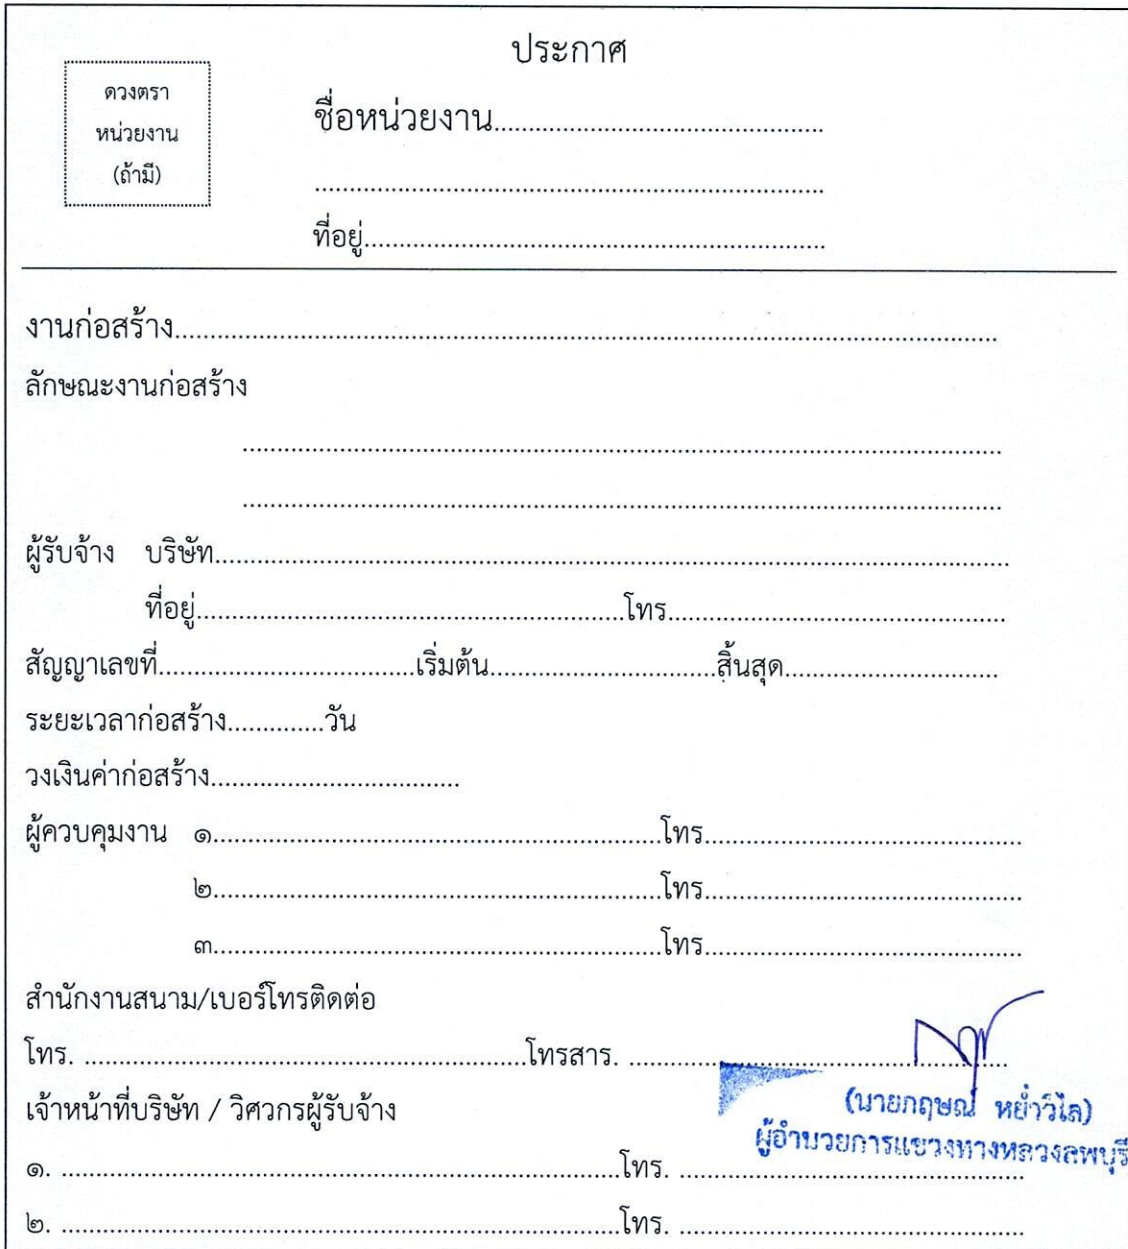 ประกาศ
ดวงตรา
หน่วยงาน
(ถ้ามี)
ชื่อหน่วยงาน................................................
..........................................................................
ที่อยู่...................................................................
งานก่อสร้าง........................................................................................................................
ลักษณะงานก่อสร้าง
..............................................................................................................
..............................................................................................................
ผู้รับจ้าง บริษัท...................................................................................................................
ที่อยู่..............................................................โทร.................................................
สัญญาเลขที่.....................................เริ่มต้น.................................สิ้นสุด...............................
ระยะเวลาก่อสร้าง..............วัน
วงเงินค่าก่อสร้าง....................................
ผู้ควบคุมงาน ๑.................................................................โทร..............................................
๒.................................................................โทร..............................................
๓.................................................................โทร..............................................
สำนักงานสนาม/เบอร์โทรติดต่อ
โทร. ................................................................โทรสาร. .......................................................
เจ้าหน้าที่บริษัท / วิศวกรผู้รับจ้าง
(นายกฤษณ์ หย่ำวิไล)
ผู้อำนวยการแขวงทางหลวงลพบุรี
๑. .................................................................................โทร. ..................................................
๒. .................................................................................โทร. ..................................................